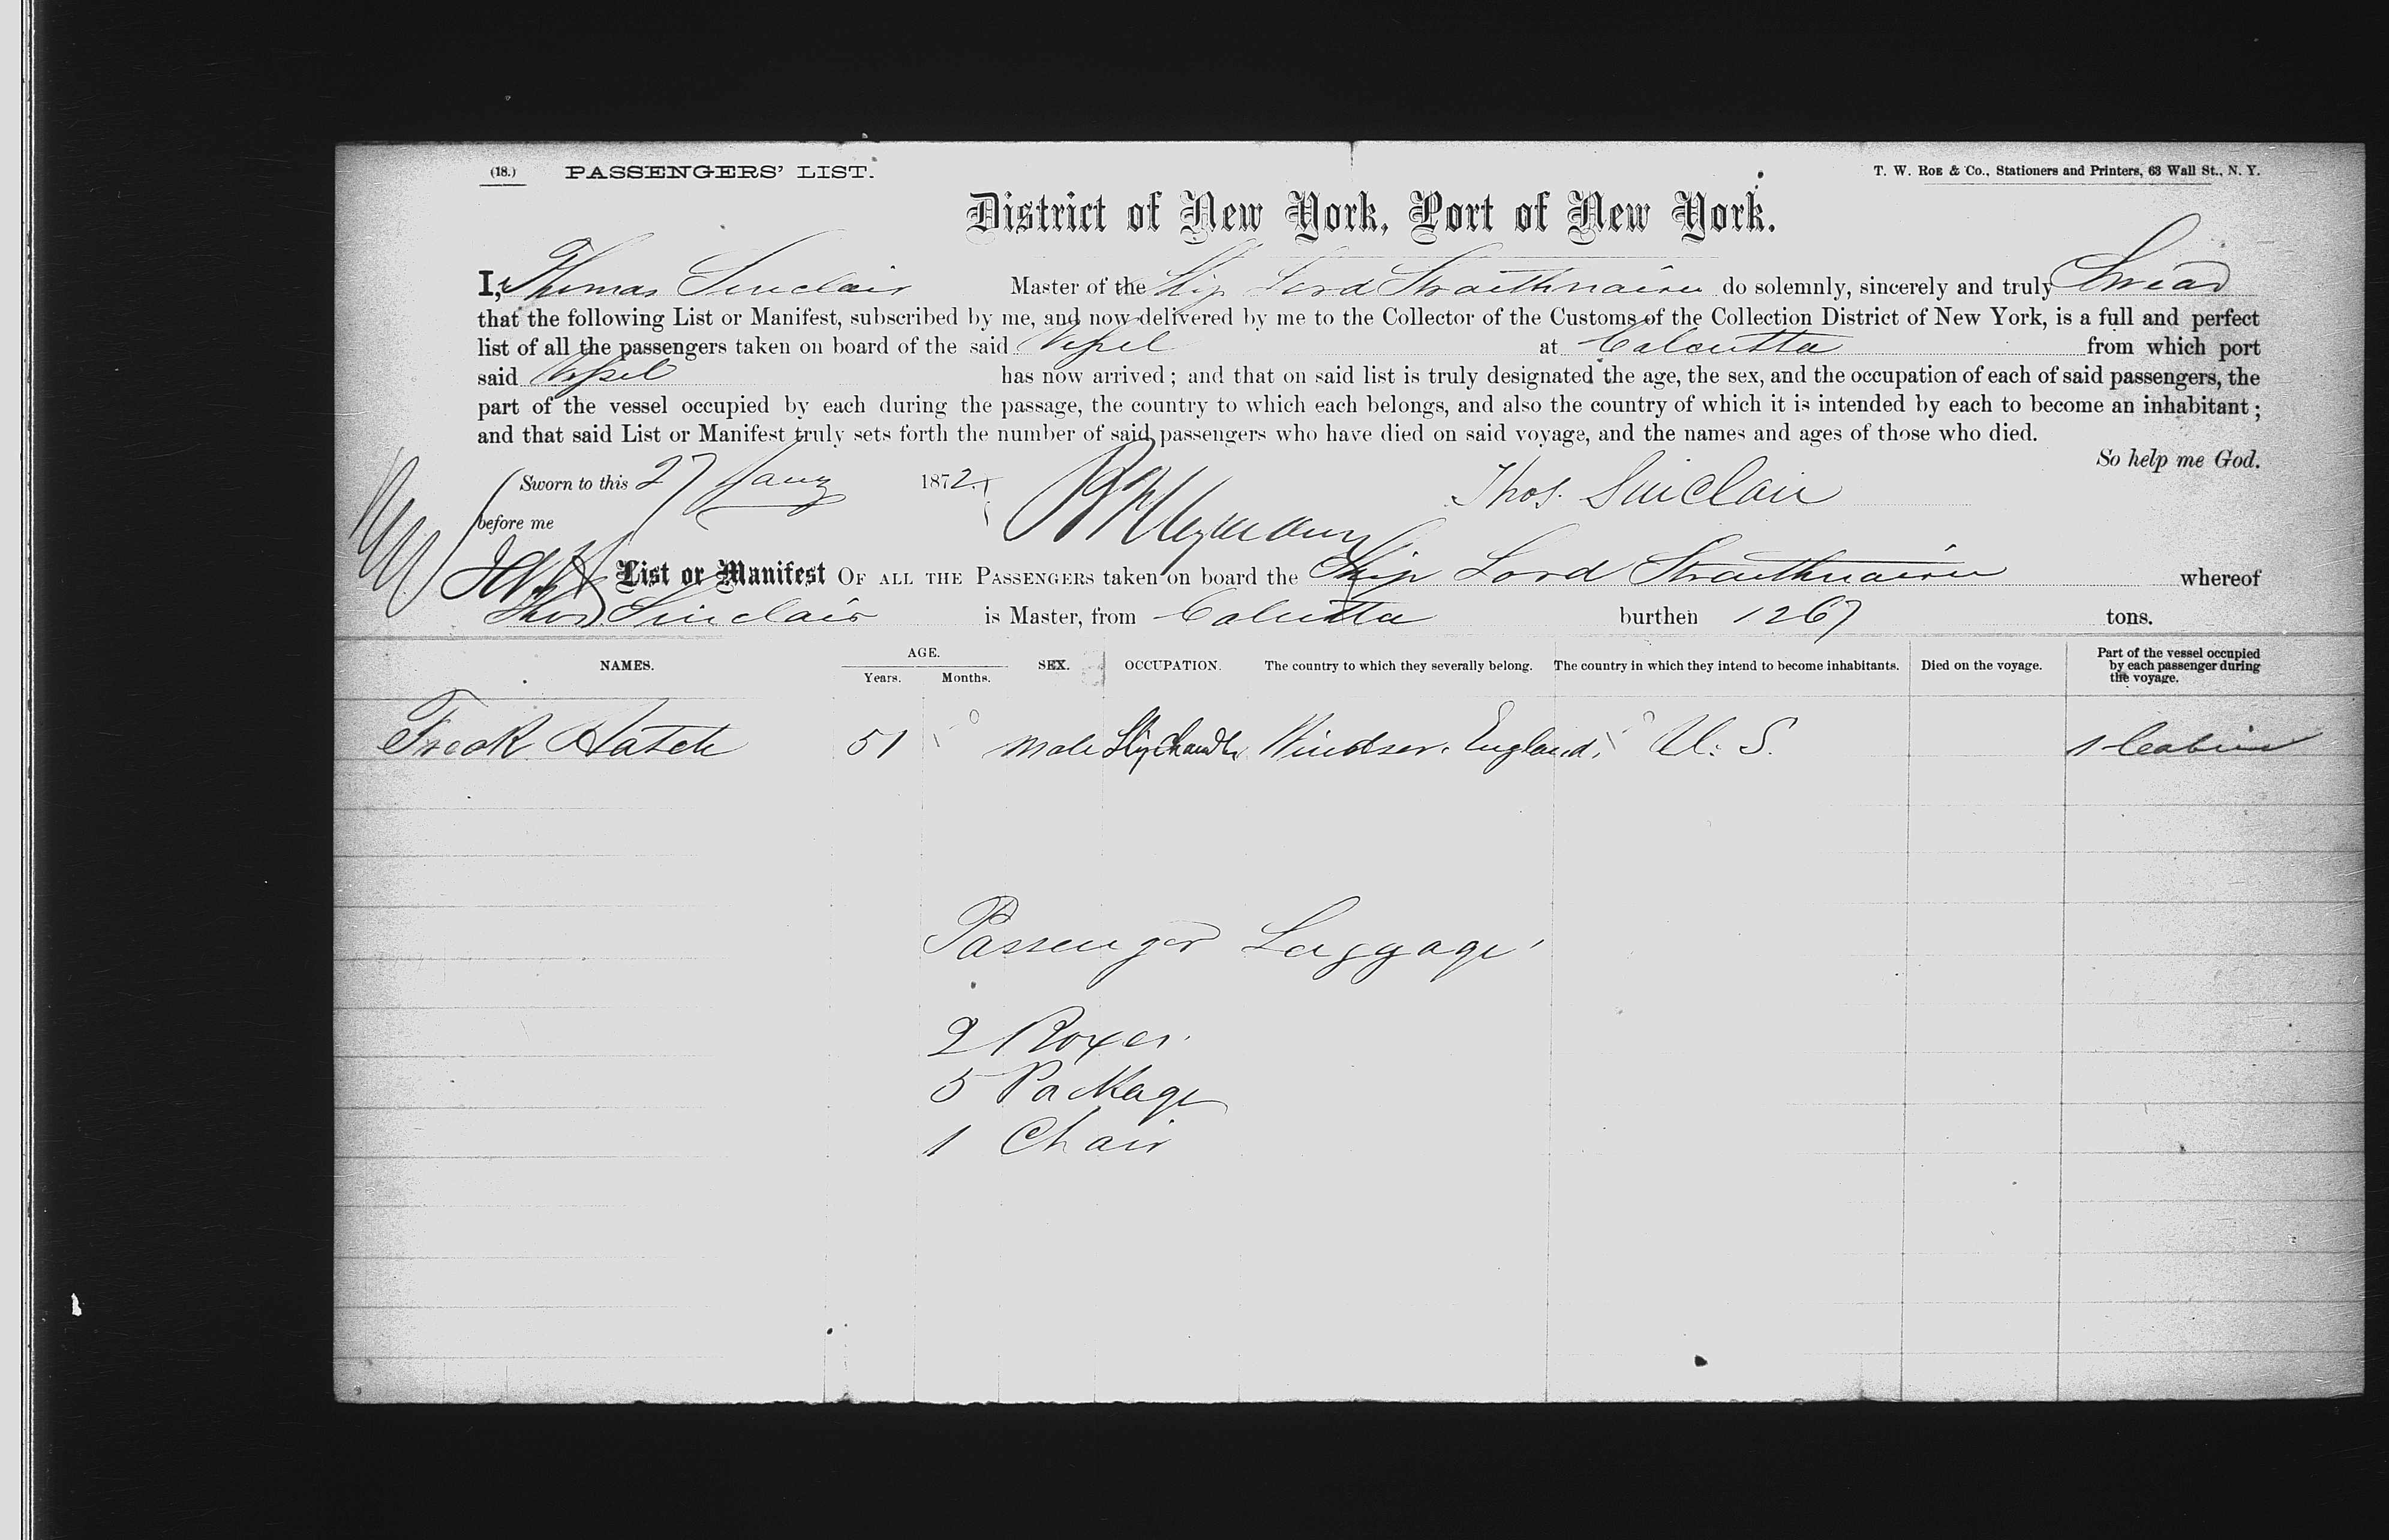 (18.) PASSENGERS' LIST. T. W. ROE & Co., Stationers and Printers, 63 Wall St., N. Y.
District of New York, Port of New York.
I, Thomas Sinclair Master of the Ship Lord Straithnairn do solemnly, sincerely and truly Swear
that the following List or Manifest, subscribed by me, and now delivered by me to the Collector of the Customs of the Collection District of New York, is a full and perfect
list of all the passengers taken on board of the said Vessel at Calcutta from which port
said Vessel has now arrived; and that on said list is truly designated the age, the sex, and the occupation of each of said passengers, the
part of the vessel occupied by each during the passage, the country to which each belongs, and also the country of which it is intended by each to become an inhabitant;
and that said List or Manifest truly sets forth the number of said passengers who have died on said voyage, and the names and ages of those who died.
So help me God.
Sworn to this 27 Jany 1872. Thos. Sinclair
before me
List or Manifest OF ALL THE PASSENGERS taken on board the Ship Lord Straithnairn whereof
Thos Sinclair is Master, from Calcutta burthen 1267 tons.
NAMES. AGE. Years. Months. SEX. OCCUPATION. The country to which they severally belong. The country in which they intend to become inhabitants. Died on the voyage. Part of the vessel occupied by each passenger during the voyage.
Fredk Hatch 51 Male Ship Chandler Windsor. England. U. S. 1 Cabin
Passenger Luggage
2 Boxes.
5 Package
1 Chair